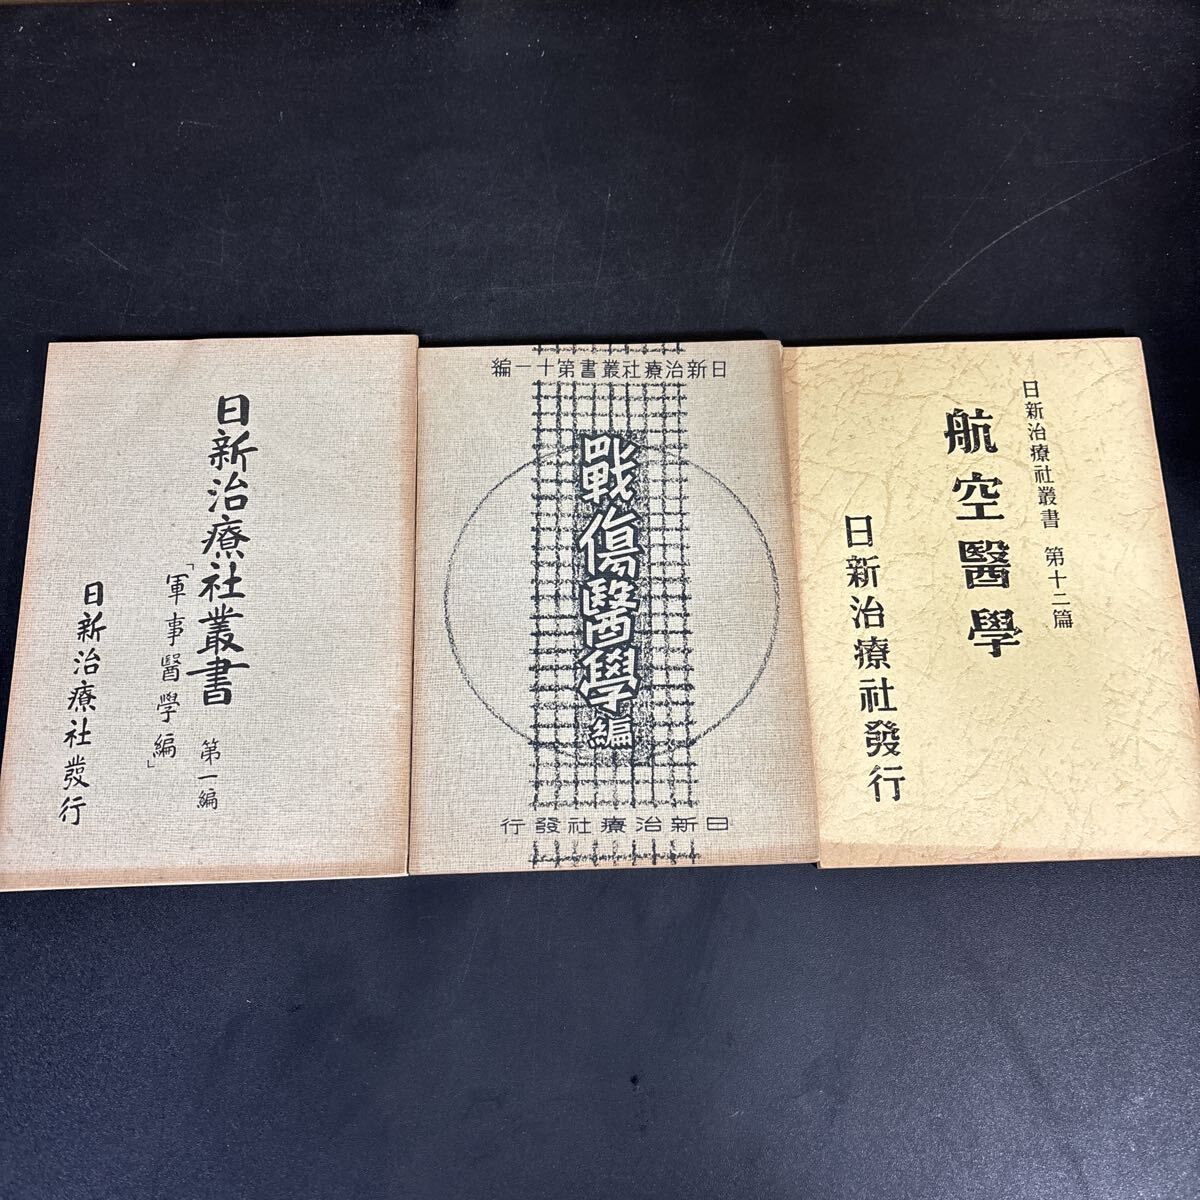 日新治療社叢書 第一編
「軍事醫學編」
日新治療社發行
日新治療社叢書第十一編
戰傷醫學編
日新治療社發行
日新治療社叢書 第十二篇
航空醫學
日新治療社發行